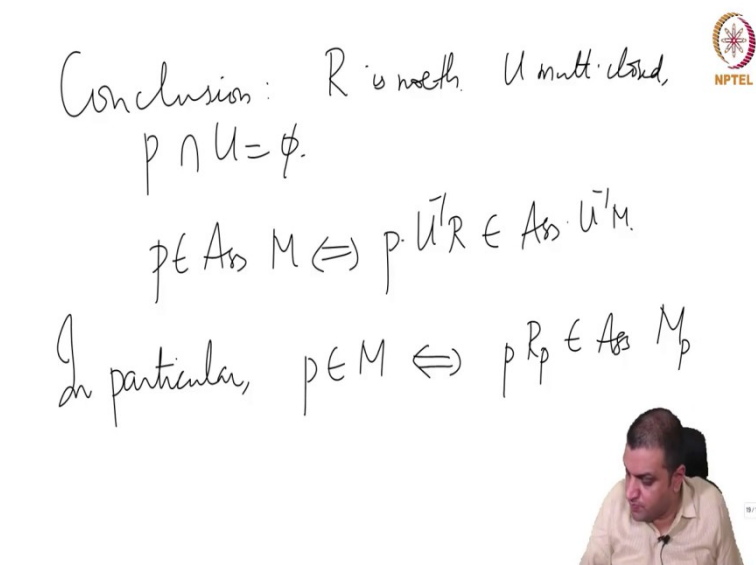 Conclusion: R is noeth. U mult. closed,
NPTEL
p ∩ U = ϕ.
p ∈ Ass M ⟺ p·U⁻¹R ∈ Ass U⁻¹M.
In particular, p ∈ M ⟺ pR_p ∈ Ass M_p